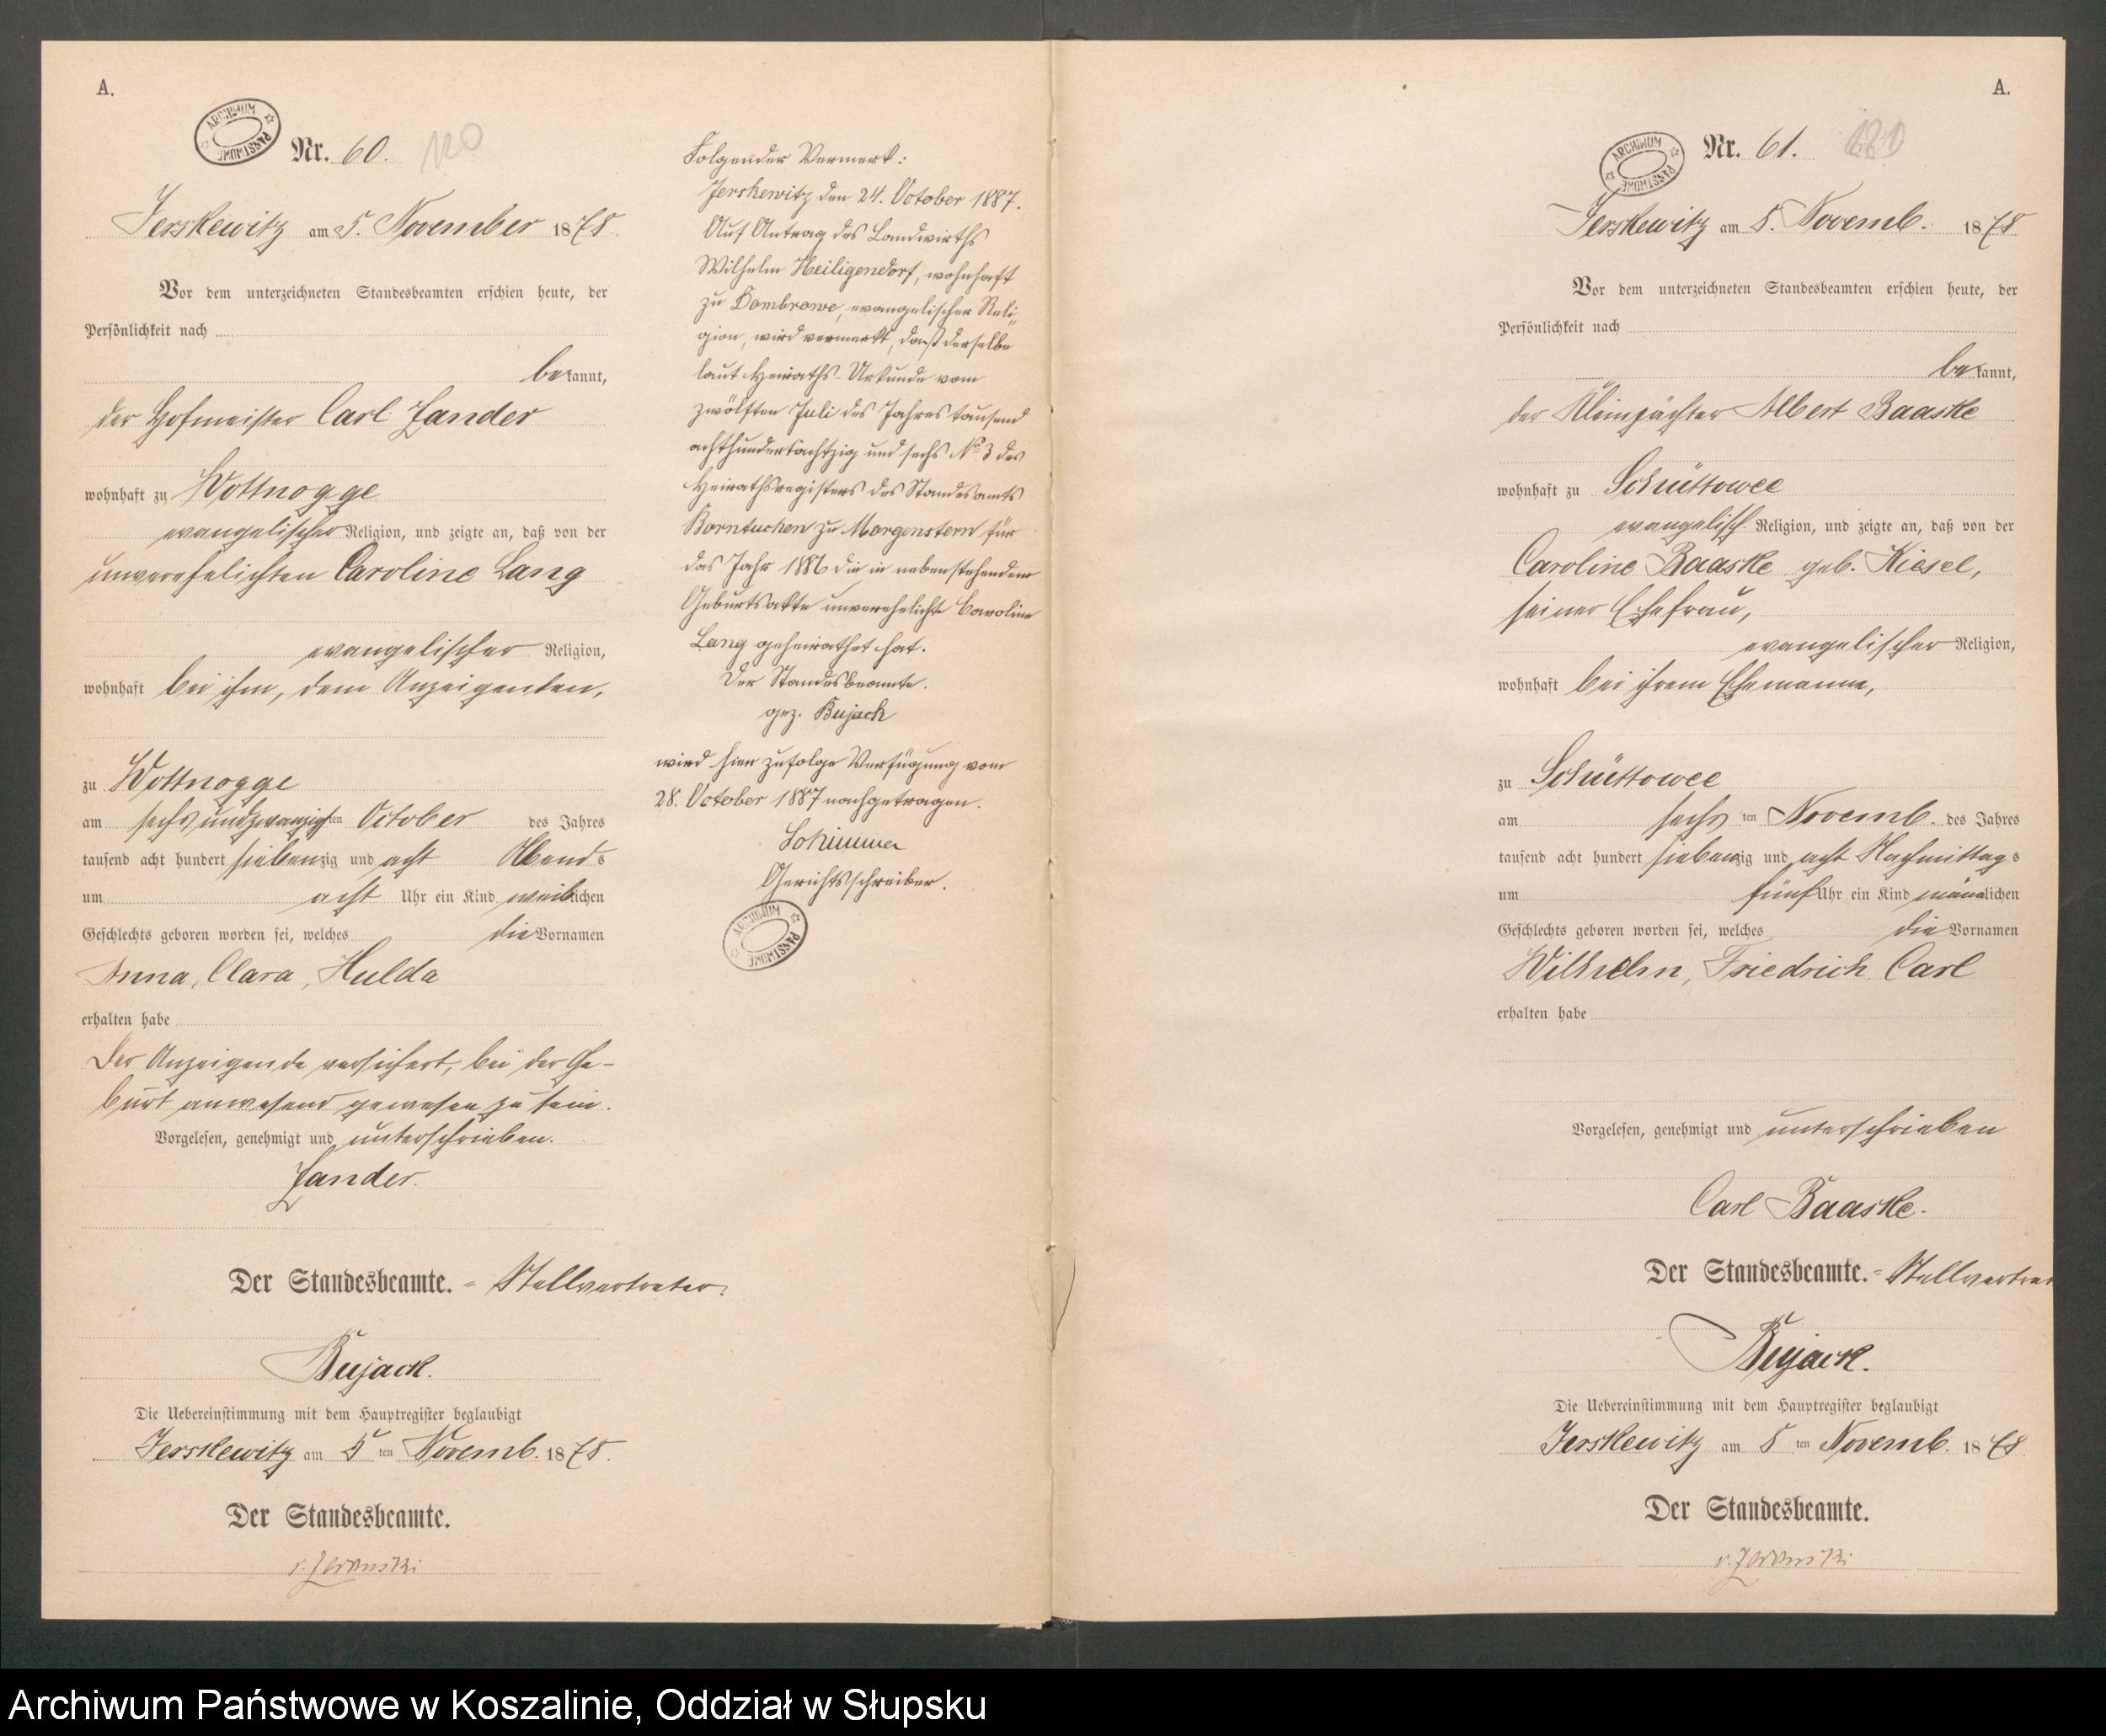 A.
ARCHIWUM PAŃSTWOWE
Nr. 60. 120
Jerskewitz am 5. November 1878.
Vor dem unterzeichneten Standesbeamten erschien heute, der
Persönlichkeit nach
bekannt,
der Hofmeister Carl Zander
wohnhaft zu Wottnogge
evangelischer Religion, und zeigte an, daß von der
unverehelichten Caroline Lang
evangelischer Religion,
wohnhaft bei ihm, dem Anzeigenden,
zu Wottnogge
am sechsundzwanzigsten October des Jahres
tausend acht hundert siebenzig und acht Abends
um acht Uhr ein Kind weiblichen
Geschlechts geboren worden sei, welches die Vornamen
Anna, Clara, Hulda
erhalten habe
Der Anzeigende versichert, bei der Ge-
burt anwesend gewesen zu sein.
Vorgelesen, genehmigt und unterschrieben.
Zander.
Der Standesbeamte. = Stellvertreter.
Bujack.
Die Uebereinstimmung mit dem Hauptregister beglaubigt
Jerskewitz am 5 ten Novemb. 1878.
Der Standesbeamte.
Folgender Vermerk:
Jerskewitz den 24. October 1887.
Auf Antrag des Landwirths
Wilhelm Heiligendorf, wohnhaft
zu Dombrowe, evangelischer Reli-
gion, wird vermerkt, daß derselbe
laut Heiraths-Urkunde vom
zwölften Juli des Jahres tausend
achthundertachtzig und sechs No 3 des
Heirathsregisters des Standesamts
Borntuchen zu Morgenstern für
das Jahr 1886 die in nebenstehendem
Geburtsakte unverehelichte Caroline
Lang geheirathet hat.
Der Standesbeamte.
gez. Bujack
wird hier zufolge Verfügung vom
28. October 1887 nachgetragen.
Gerichtsschreiber.
ARCHIWUM PAŃSTWOWE
A.
ARCHIWUM PAŃSTWOWE
Nr. 61.
Jerskewitz am 8. Novemb. 1878
Vor dem unterzeichneten Standesbeamten erschien heute, der
Persönlichkeit nach
bekannt,
der Kleinpächter Albert Baaske
wohnhaft zu Schüttowee
evangelisch. Religion, und zeigte an, daß von der
Caroline Baaske geb. Kiesel,
seiner Ehefrau,
evangelischer Religion,
wohnhaft bei ihrem Ehemanne,
zu Schüttowee
am sechs ten Novemb. des Jahres
tausend acht hundert siebenzig und acht Nachmittags
um fünf Uhr ein Kind männlichen
Geschlechts geboren worden sei, welches die Vornamen
Wilhelm, Friedrich Carl
erhalten habe
Vorgelesen, genehmigt und unterschrieben
Carl Baaske.
Der Standesbeamte. = Stellvertre
Bujack.
Die Uebereinstimmung mit dem Hauptregister beglaubigt
Jerskewitz am 8 ten Novemb. 1878
Der Standesbeamte.
Archiwum Państwowe w Koszalinie, Oddział w Słupsku